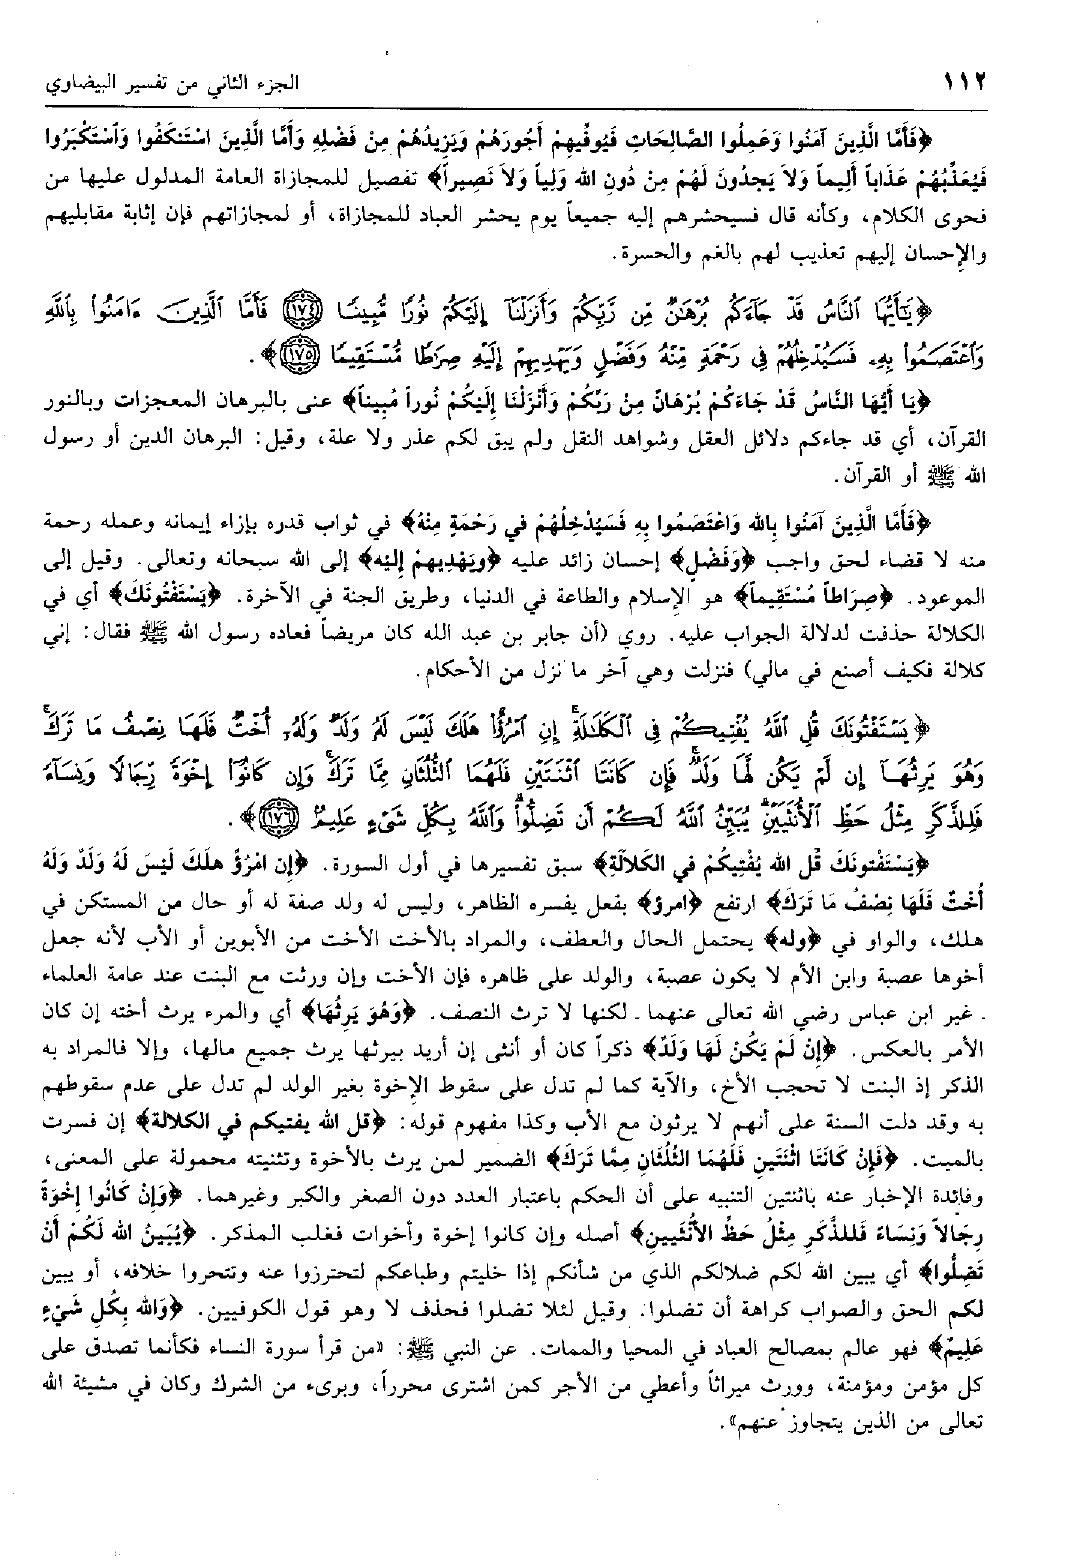 ١١٢
الجزء الثاني من تفسير البيضاوي
﴿فَأَمَّا الَّذِينَ آمَنُوا وَعَمِلُوا الصَّالِحَاتِ فَيُوَفِّيهِمْ أُجُورَهُمْ وَيَزِيدُهُمْ مِنْ فَضْلِهِ وَأَمَّا الَّذِينَ اسْتَنْكَفُوا وَاسْتَكْبَرُوا
فَيُعَذِّبُهُمْ عَذَاباً أَلِيماً وَلاَ يَجِدُونَ لَهُمْ مِنْ دُونِ الله وَلِياً وَلاَ نَصِيراً﴾ تفصيل للمجازاة العامة المدلول عليها من
فحوى الكلام، وكأنه قال فسيحشرهم إليه جميعاً يوم يحشر العباد للمجازاة، أو لمجازاتهم فإن إثابة مقابليهم
والإحسان إليهم تعذيب لهم بالغم والحسرة.
﴿يَٰٓأَيُّهَا ٱلنَّاسُ قَدْ جَآءَكُم بُرْهَٰنٌ مِّن رَّبِّكُمْ وَأَنزَلْنَآ إِلَيْكُمْ نُورًا مُّبِينًا ﴿١٧٤﴾ فَأَمَّا ٱلَّذِينَ ءَامَنُوا۟ بِٱللَّهِ
وَٱعْتَصَمُوا۟ بِهِۦ فَسَيُدْخِلُهُمْ فِى رَحْمَةٍ مِّنْهُ وَفَضْلٍ وَيَهْدِيهِمْ إِلَيْهِ صِرَٰطًا مُّسْتَقِيمًا ﴿١٧٥﴾﴾.
﴿يَا أَيُّهَا النَّاسُ قَدْ جَاءَكُمْ بُرْهَانٌ مِنْ رَبِّكُمْ وَأَنْزَلْنَا إِلَيْكُمْ نُوراً مُبِيناً﴾ عنى بالبرهان المعجزات وبالنور
القرآن، أي قد جاءكم دلائل العقل وشواهد النقل ولم يبق لكم عذر ولا علة، وقيل: البرهان الدين أو رسول
الله ﷺ أو القرآن.
﴿فَأَمَّا الَّذِينَ آمَنُوا بِالله وَاعْتَصَمُوا بِهِ فَسَيُدْخِلُهُمْ في رَحْمَةٍ مِنْهُ﴾ في ثواب قدره بإزاء إيمانه وعمله رحمة
منه لا قضاء لحق واجب ﴿وَفَضْلٍ﴾ إحسان زائد عليه ﴿ويَهْدِيهِمْ إِلَيْهِ﴾ إلى الله سبحانه وتعالى. وقيل إلى
الموعود. ﴿صِرَاطاً مُسْتَقِيماً﴾ هو الإسلام والطاعة في الدنيا، وطريق الجنة في الآخرة. ﴿يَسْتَفْتُونَكَ﴾ أي في
الكلالة حذفت لدلالة الجواب عليه. روي (أن جابر بن عبد الله كان مريضاً فعاده رسول الله ﷺ فقال: إني
كلالة فكيف أصنع في مالي) فنزلت وهي آخر ما نزل من الأحكام.
﴿يَسْتَفْتُونَكَ قُلِ ٱللَّهُ يُفْتِيكُمْ فِى ٱلْكَلَٰلَةِ ۚ إِنِ ٱمْرُؤٌا۟ هَلَكَ لَيْسَ لَهُۥ وَلَدٌ وَلَهُۥٓ أُخْتٌ فَلَهَا نِصْفُ مَا تَرَكَ ۚ
وَهُوَ يَرِثُهَآ إِن لَّمْ يَكُن لَّهَا وَلَدٌ ۚ فَإِن كَانَتَا ٱثْنَتَيْنِ فَلَهُمَا ٱلثُّلُثَانِ مِمَّا تَرَكَ ۚ وَإِن كَانُوٓا۟ إِخْوَةً رِّجَالًا وَنِسَآءً
فَلِلذَّكَرِ مِثْلُ حَظِّ ٱلْأُنثَيَيْنِ ۗ يُبَيِّنُ ٱللَّهُ لَكُمْ أَن تَضِلُّوا۟ ۗ وَٱللَّهُ بِكُلِّ شَىْءٍ عَلِيمٌۢ ﴿١٧٦﴾﴾.
﴿يَسْتَفْتونَكَ قُل الله يُفْتِيكُمْ في الكَلاَلَةِ﴾ سبق تفسيرها في أول السورة. ﴿إِن امْرُؤٌ هلَكَ لَيْسَ لَهُ وَلَدٌ وَلَهُ
أُخْتٌ فَلَهَا نِصْفُ مَا تَرَكَ﴾ ارتفع ﴿امرؤ﴾ بفعل يفسره الظاهر، وليس له ولد صفة له أو حال من المستكن في
هلك، والواو في ﴿وله﴾ يحتمل الحال والعطف، والمراد بالأخت الأخت من الأبوين أو الأب لأنه جعل
أخوها عصبة وابن الأم لا يكون عصبة، والولد على ظاهره فإن الأخت وإن ورثت مع البنت عند عامة العلماء
ـ غير ابن عباس رضي الله تعالى عنهما ـ لكنها لا ترث النصف. ﴿وَهُوَ يَرِثُهَا﴾ أي والمرء يرث أخته إن كان
الأمر بالعكس. ﴿إِنْ لَمْ يَكُنْ لَهَا وَلَدٌ﴾ ذكراً كان أو أنثى إن أريد بيرثها يرث جميع مالها، وإلا فالمراد به
الذكر إذ البنت لا تحجب الأخ، والآية كما لم تدل على سقوط الإخوة بغير الولد لم تدل على عدم سقوطهم
به وقد دلت السنة على أنهم لا يرثون مع الأب وكذا مفهوم قوله: ﴿قل الله يفتيكم في الكلالة﴾ إن فسرت
بالميت. ﴿فَإِنْ كَانَتَا اثْنَتَينِ فَلَهُمَا الثُّلُثَانِ مِمَّا تَرَكَ﴾ الضمير لمن يرث بالأخوة وتثنيته محمولة على المعنى،
وفائدة الإخبار عنه باثنتين التنبيه على أن الحكم باعتبار العدد دون الصغر والكبر وغيرهما. ﴿وَإِنْ كَانُوا إِخْوَةً
رِجَالاً وَنِسَاءً فَلِلذَّكَرِ مِثْلُ حَظِّ الأُنْثَيينِ﴾ أصله وإن كانوا إخوة وأخوات فغلب المذكر. ﴿يُبَيِّنُ الله لَكُمْ أَنْ
تَضِلُّوا﴾ أي يبين الله لكم ضلالكم الذي من شأنكم إذا خليتم وطباعكم لتحترزوا عنه وتتحروا خلافه، أو يبين
لكم الحق والصواب كراهة أن تضلوا. وقيل لئلا تضلوا فحذف لا وهو قول الكوفيين. ﴿وَالله بِكُلِ شَيْءٍ
عَلِيمٌ﴾ فهو عالم بمصالح العباد في المحيا والممات. عن النبي ﷺ: «من قرأ سورة النساء فكأنما تصدق على
كل مؤمن ومؤمنة، وورث ميراثاً وأعطي من الأجر كمن اشترى محرراً، وبرىء من الشرك وكان في مشيئة الله
تعالى من الذين يتجاوز عنهم».